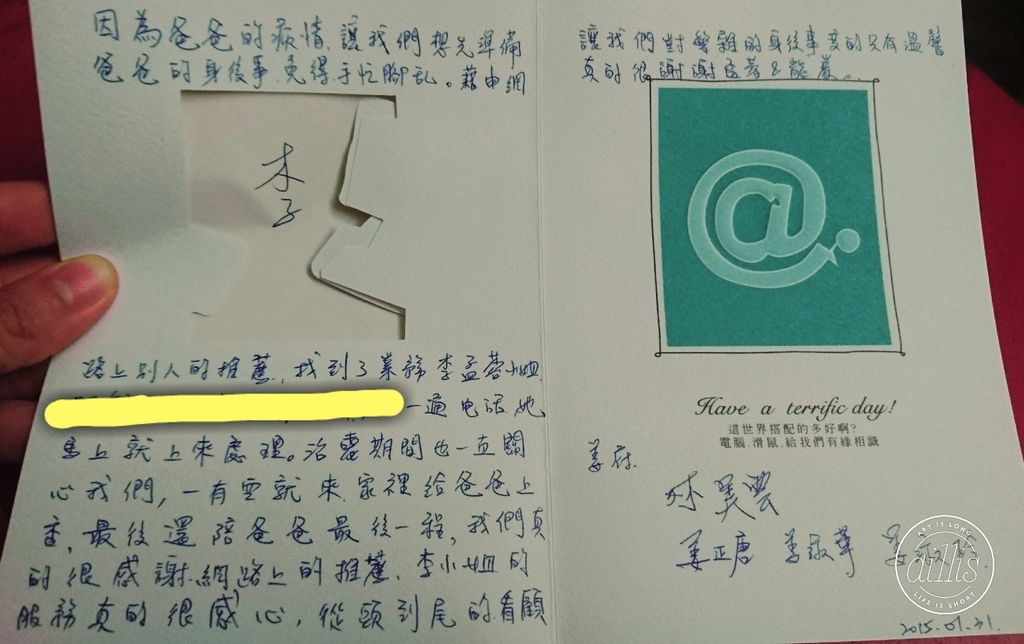 因為爸爸的病情,讓我們想先準備
爸爸的身後事,免得手忙腳乱。藉由網
李
路上别人的推薦,找到了業務李孟蓉小姐
一通电话她
馬上就上來處理。治喪期間也一直關
心我們,一有空就來家裡給爸爸上
香,最後還陪爸爸最後一程,我們真
的很感謝網路上的推薦,李小姐的
服務真的很感心,從頭到尾的看顧
讓我們對繁雜的身後事变的只有溫馨
真的很謝謝
@
Have a terrific day!
這世界搭配的多好啊?
電腦.滑鼠.給我們有緣相識
姜府
林美雲
姜正唐 姜淑華 姜
ART IS LONG
LIFE IS SHORT
2015.01.31.